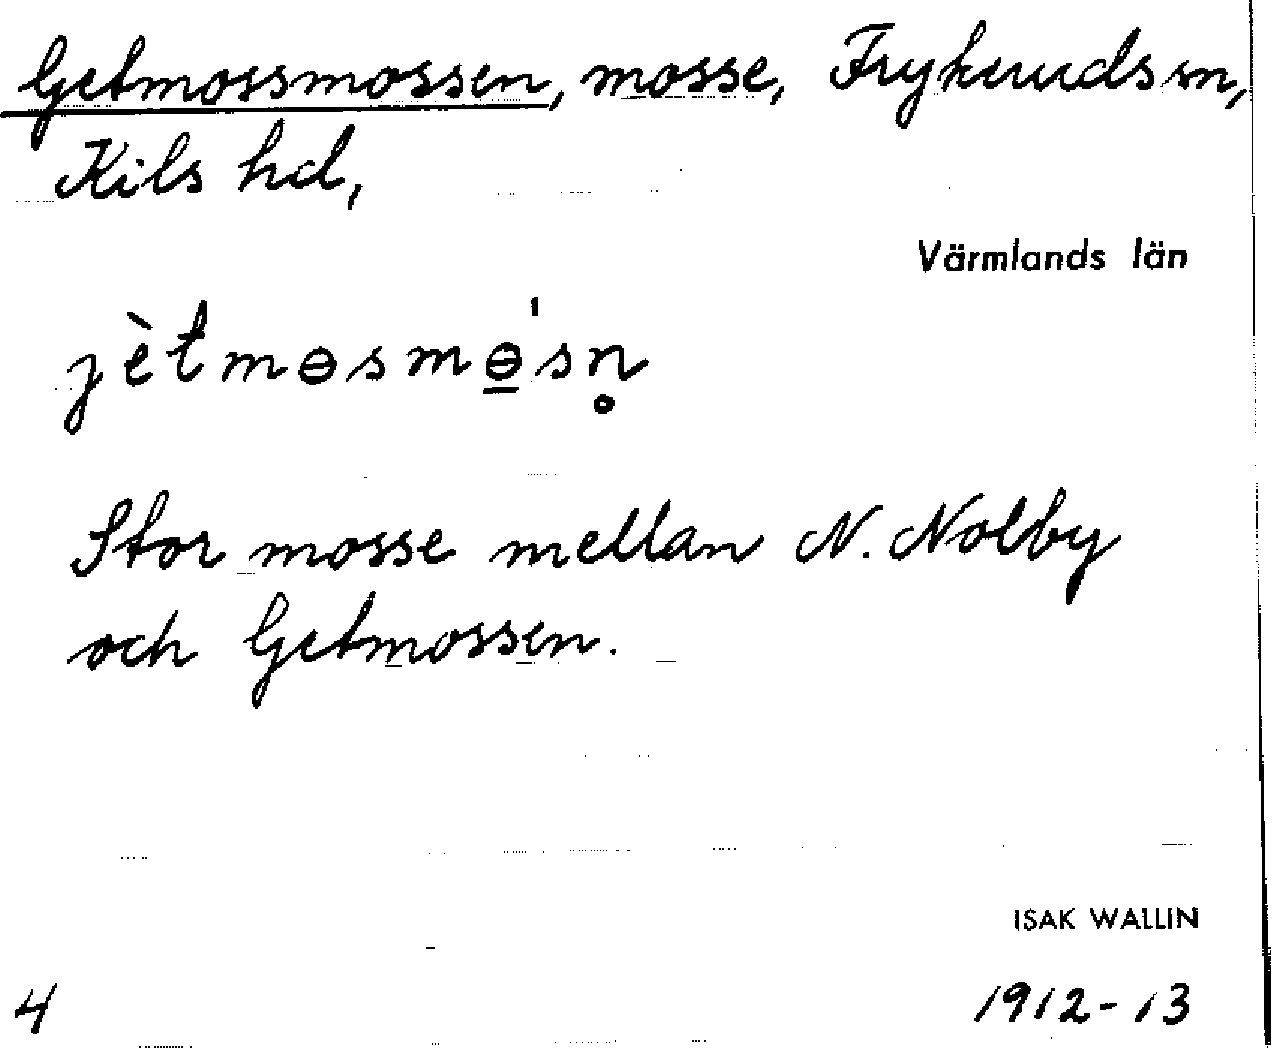 Getmossmossen, mosse, Frykeruds sn,
Kils hd,
Värmlands län
jètmɵsmɵ̲́sn̥
Stor mosse mellan N. Nolby
och Getmossen.
ISAK WALLIN
4 1912-13